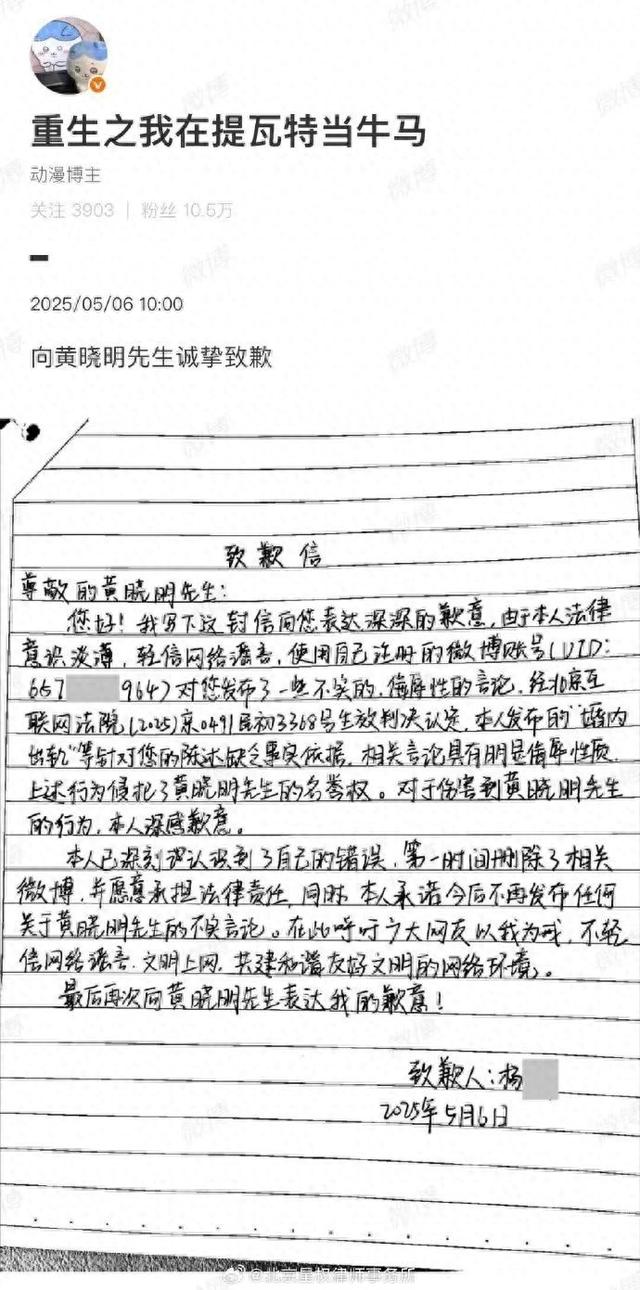 重生之我在提瓦特当牛马
动漫博主
关注 3903 | 粉丝 10.5万
2025/05/06 10:00
向黄晓明先生诚挚致歉
致歉信
尊敬的黄晓明先生:
您好!我写下这封信向您表达深深的歉意,由于本人法律
意识淡薄,轻信网络谣言,使用自己注册的微博账号(UID:
657 964)对您发布了一些不实的、侮辱性的言论,经北京互
联网法院(2025)京0491民初3368号生效判决认定,本人发布的“婚内
出轨”等针对您的陈述缺乏事实依据,相关言论具有明显侮辱性质,
上述行为侵犯了黄晓明先生的名誉权。对于伤害到黄晓明先生
的行为,本人深感歉意。
本人已深刻认识到了自己的错误,第一时间删除了相关
微博,并愿意承担法律责任,同时,本人承诺今后不再发布任何
关于黄晓明先生的不实言论。在此呼吁广大网友以我为戒,不轻
信网络谣言,文明上网,共建和谐友好文明的网络环境。
最后再次向黄晓明先生表达我的歉意!
致歉人:杨
2025年5月6日
@北京星权律师事务所
微博